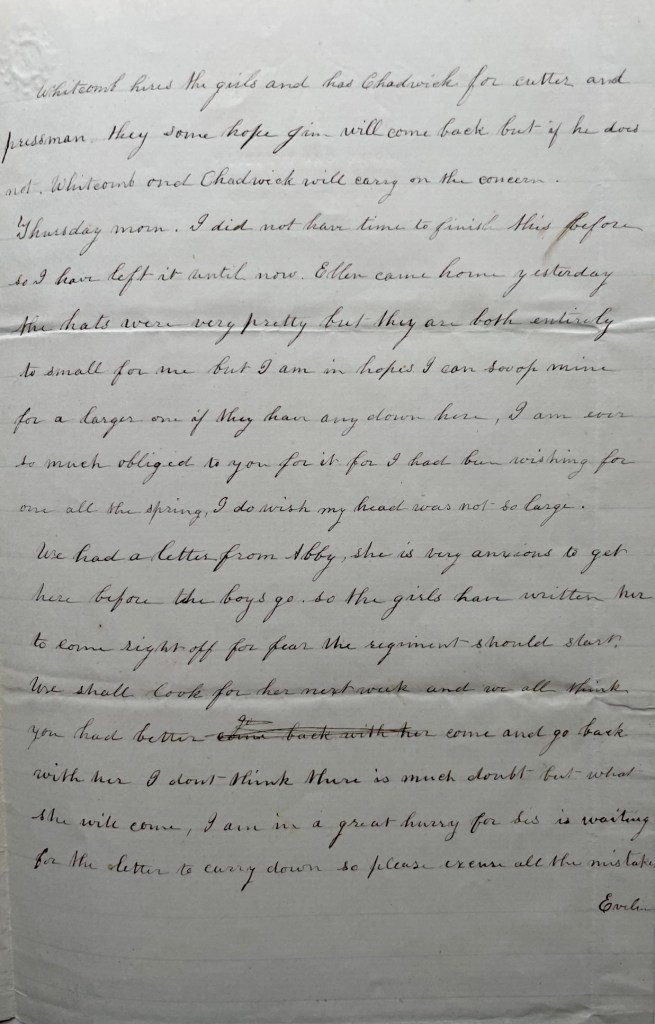 Whitcomb hires the girls and has Chadwick for cutter and
pressman. they some hope Jim will come back but if he does
not. Whitcomb and Chadwick will carry on the concern.
Thursday morn. I did not have time to finish this before
so I have left it until now. Ellen came home yesterday
the hats were very pretty but they are both entirely
to small for me but I am in hopes I can swop mine
for a larger one if they have any down here, I am ever
so much obliged to you for it for I had been wishing for
one all the spring, I do wish my head was not so large.
We had a letter from Abby, she is very anxious to get
here before the boys go. so the girls have written her
to come right off for fear the regiment should start.
We shall look for her next week and we all think
you had better come back with her come and go back
with her I dont think there is much doubt but what
she will come, I am in a great hurry for is waiting
for the letter to carry down so please excuse all the mistake